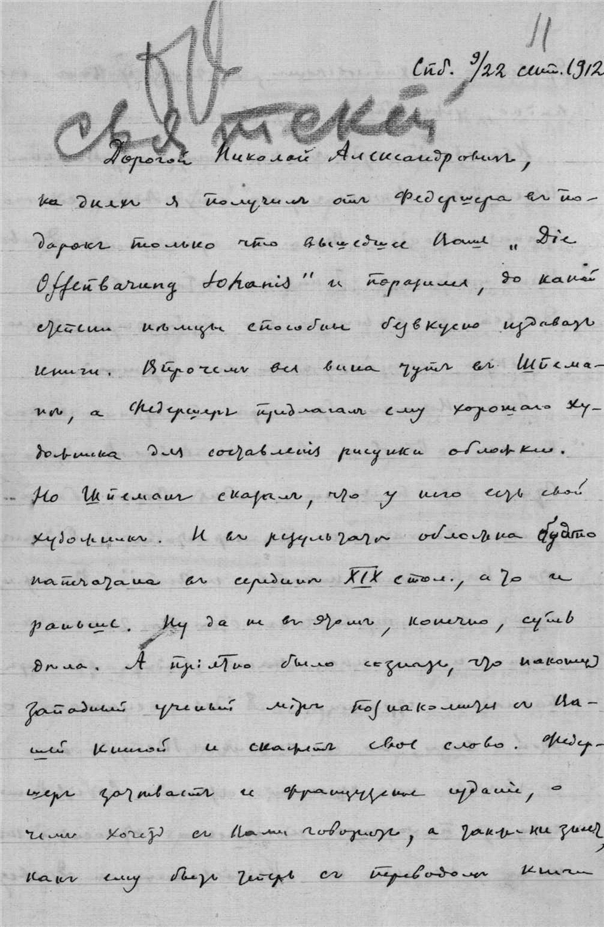 11
Спб. 9/22 сент. 1912
Святский
Дорогой Николай Александровичъ,
на дняхъ я получилъ отъ Федершера въ по-
дарокъ только что вышедшее Ваше „Die
Offenbarung Johanis" и поразился, до какой
степени нѣмцы способны безвкусно издавать
книги. Впрочемъ вся вина тутъ въ Штема-
нѣ, а Федершеръ предлагалъ ему хорошаго ху-
дожника для составленія рисунка обложки.
Но Штеманъ сказалъ, что у него есть свой
художникъ. И въ результатѣ обложка будто
напечатана въ серединѣ XIX стол., а то и
раньше. Ну да не въ этомъ, конечно, суть
дѣла. А пріятно было сознать, что наконецъ
западный ученый міръ познакомится съ Ва-
шей книгой и скажетъ свое слово. Федер-
шеръ затѣваетъ и французское изданіе, о
чемъ хочетъ съ Вами говорить, а также не знаетъ,
какъ ему быть теперь съ переводомъ книги